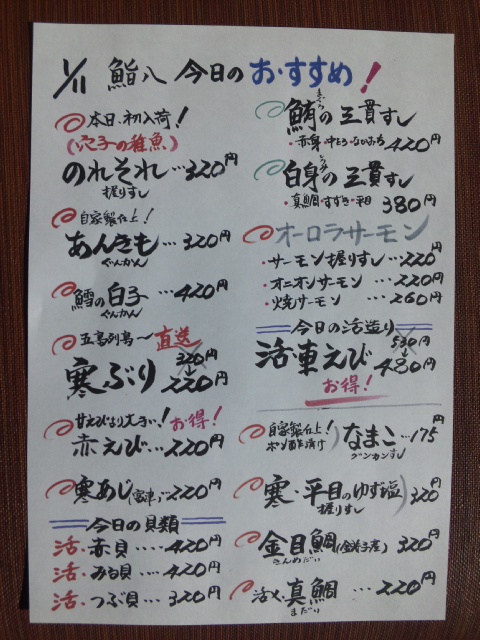 1/11 鮨八 今日のおすすめ!
本日、初入荷!
(穴子の稚魚)
のれそれ…320円
握りすし
自家製仕上!
あんきも…320円
ぐんかん
鱈の白子…420円
ぐんかん
五島列島〜直送
320円
寒ぶり→220円
甘えびより大きい!お得!
赤えび…220円
寒あじ(富津)…220円
今日の貝類
活・赤貝…420円
活・みる貝…420円
活・つぶ貝…320円
まぐろ
鮪の三貫すし
・赤身・中とろ・なかおち 420円
しろみ
白身の三貫すし
・真鯛・すずき・平目 380円
オーロラサーモン
・サーモン握りすし…220円
・オニオンサーモン…220円
・焼サーモン…260円
今日の活造り
530円
活・車えび→480円
お得!
自家製仕上!
ポン酢漬け
なまこ…175円
グンカンすし
寒・平目のゆず塩 320円
握りすし
金目鯛 320円
きんめだい
活〆真鯛…220円
まだい